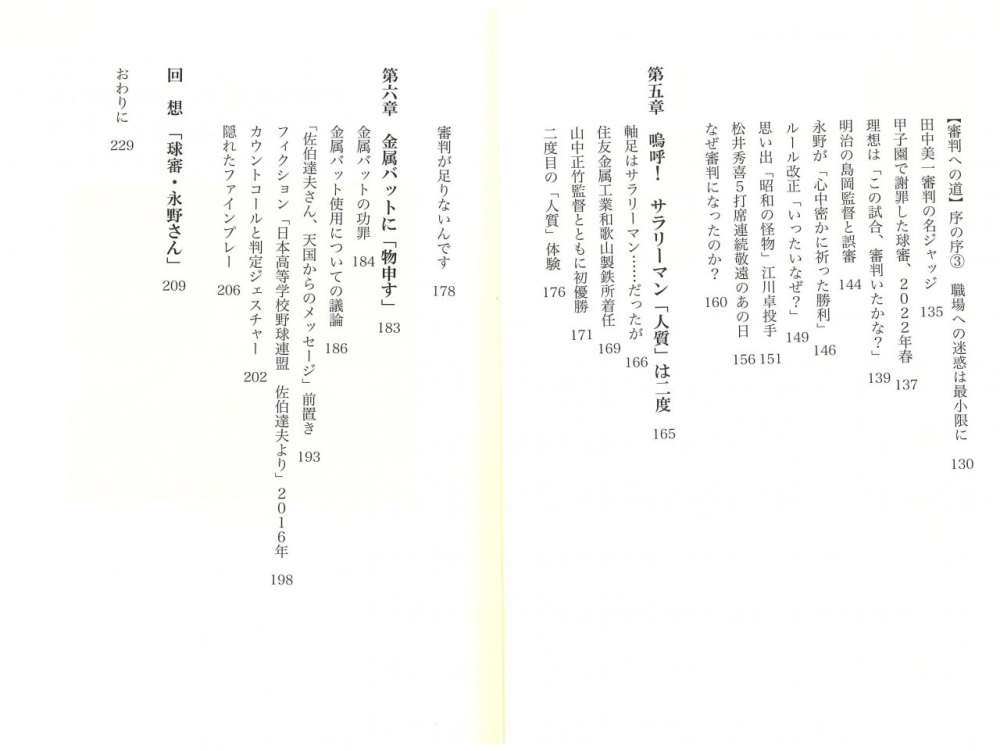 【審判への道】序の序③ 職場への迷惑は最小限に 130
田中美一審判の名ジャッジ 135
甲子園で謝罪した球審、2022年春 137
理想は「この試合、審判いたかな？」 139
明治の島岡監督と誤審 144
永野が「心中密かに祈った勝利」 146
ルール改正「いったいなぜ？」 149
思い出「昭和の怪物」江川卓投手 151
松井秀喜5打席連続敬遠のあの日 156
なぜ審判になったのか？ 160
第五章 嗚呼！ サラリーマン「人質」は二度 165
軸足はサラリーマン……だったが 166
住友金属工業和歌山製鉄所着任 169
山中正竹監督とともに初優勝 171
二度目の「人質」体験 176
審判が足りないんです 178
第六章 金属バットに「物申す」 183
金属バットの功罪 184
金属バット使用についての議論 186
「佐伯達夫さん、天国からのメッセージ」前置き 193
フィクション「日本高等学校野球連盟 佐伯達夫より」2016年 198
カウントコールと判定ジェスチャー 202
隠れたファインプレー 206
回 想 「球審・永野さん」 209
おわりに 229